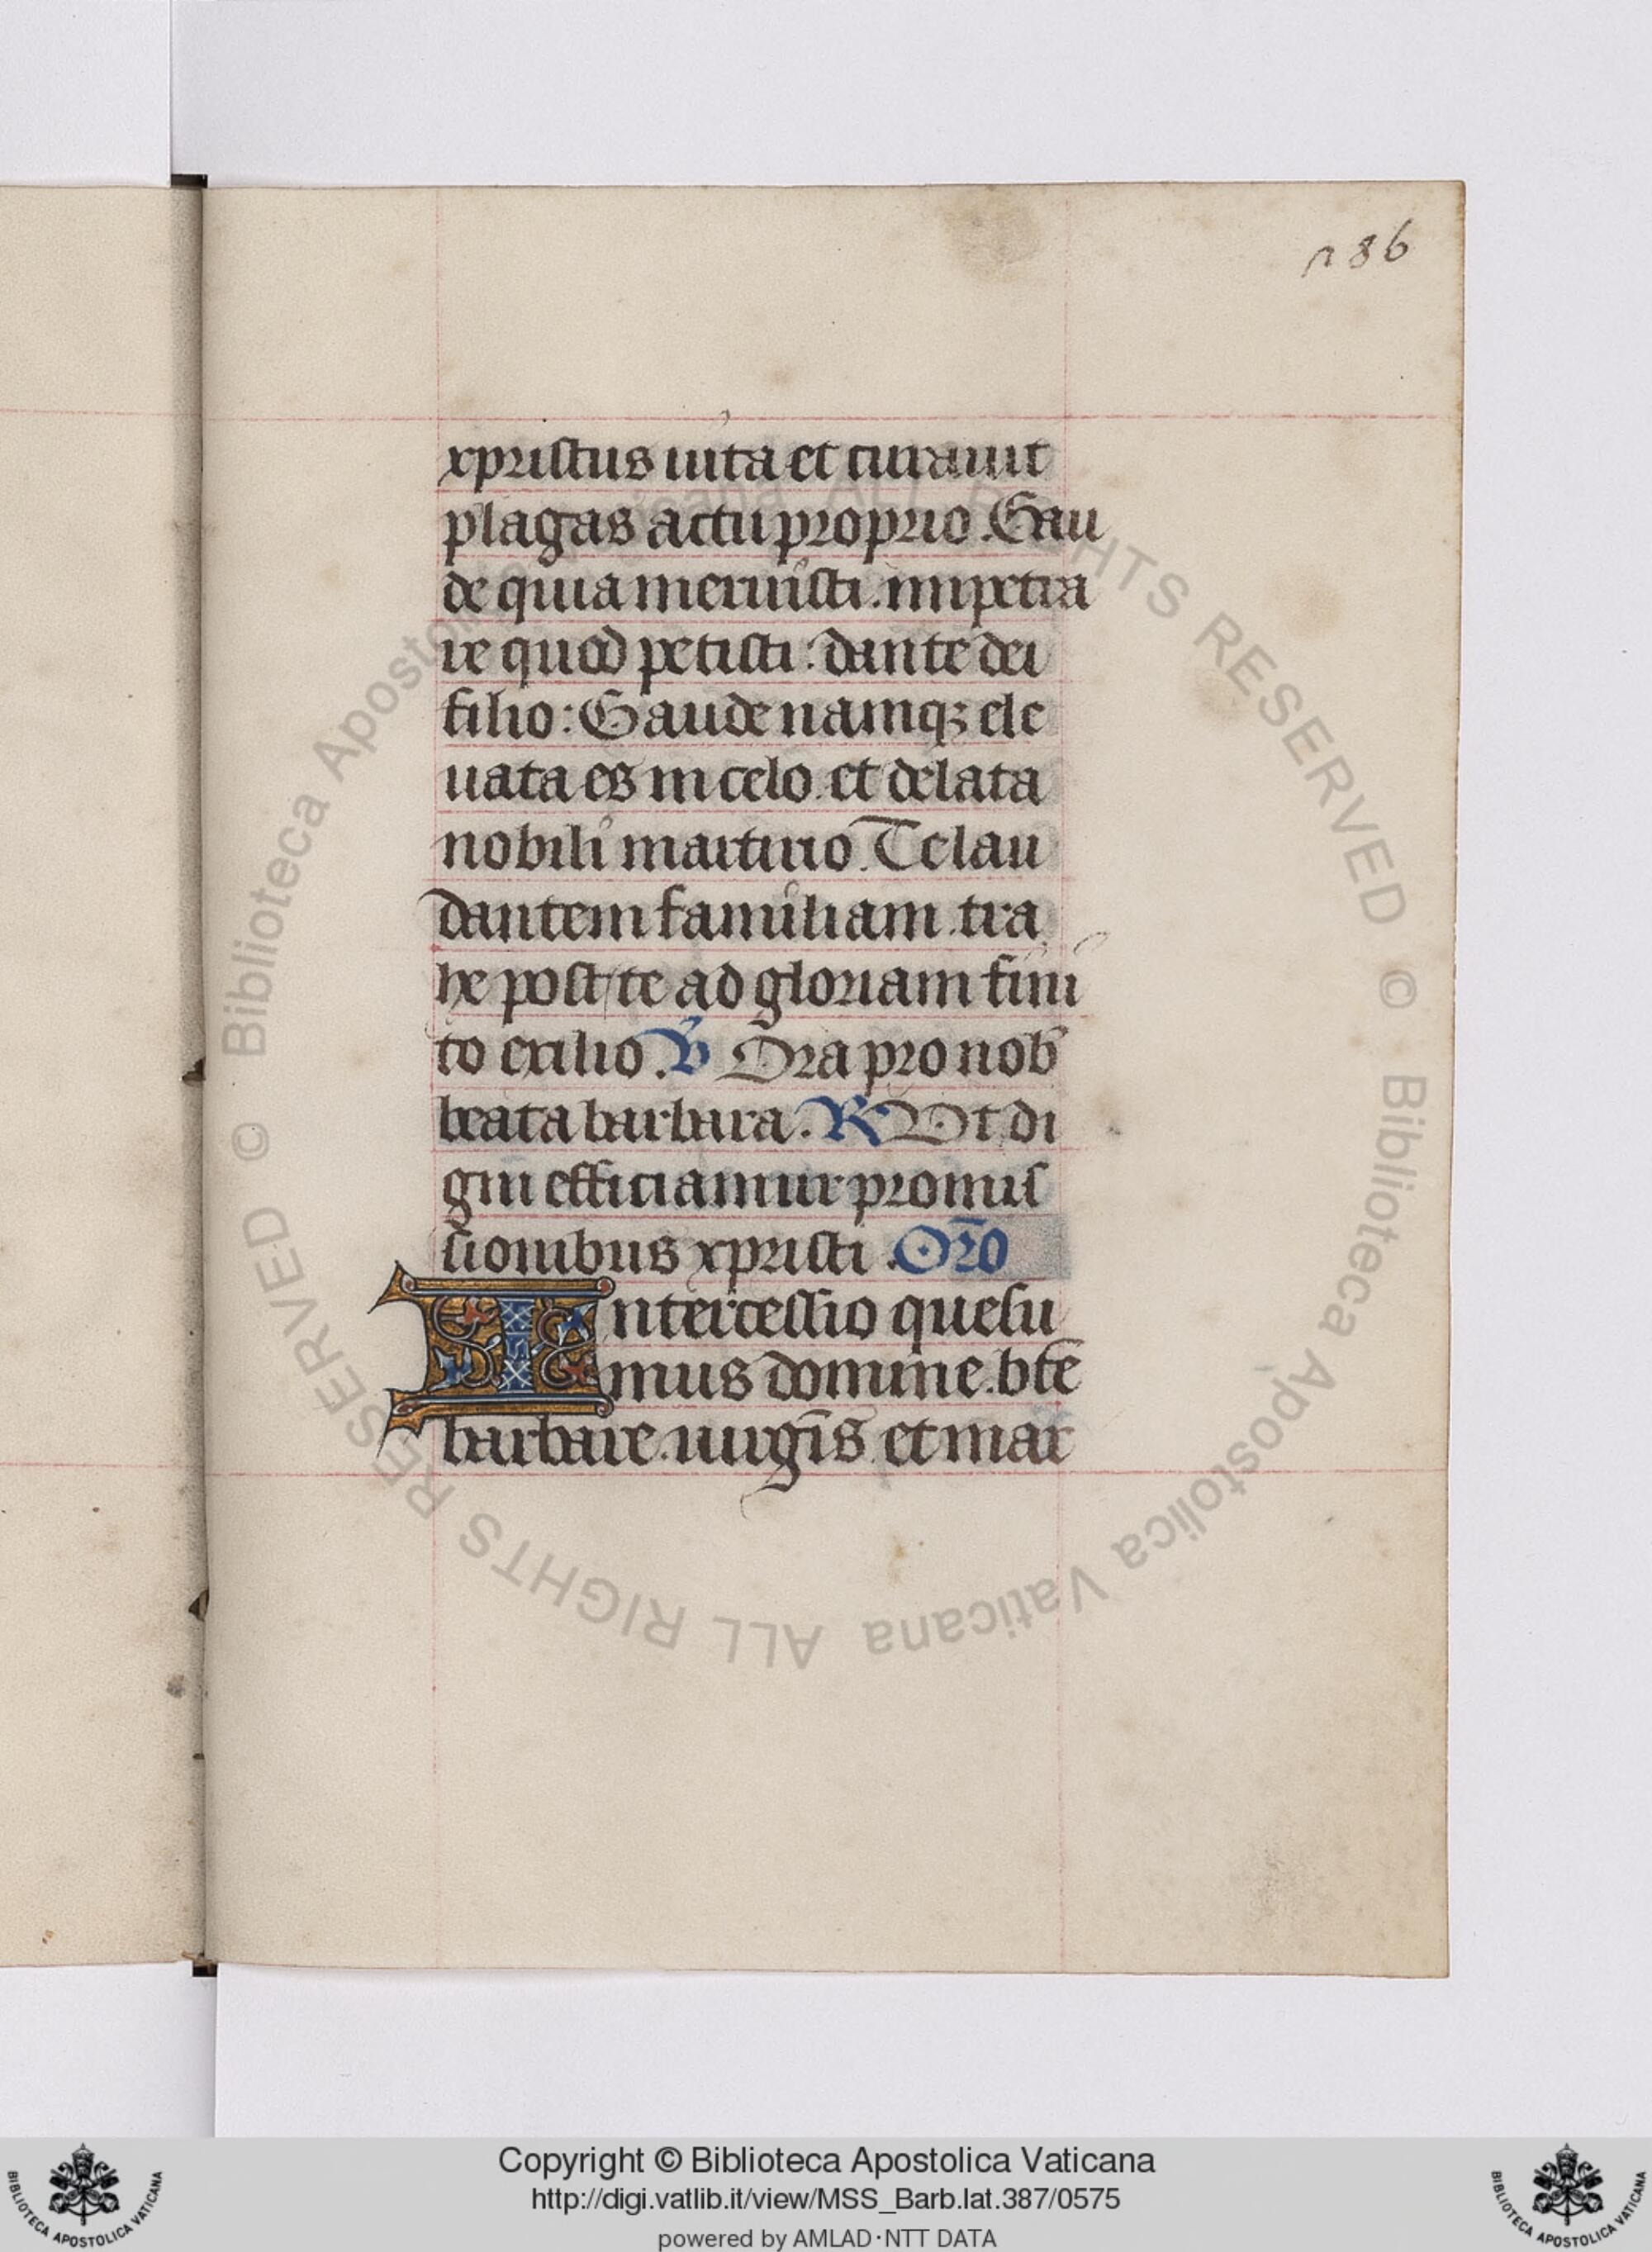 286
xpristus uita et curauit
plagas actu proprio. Gau
de quia meruisti. impetra
re quod petisti: dante dei
filio: Gaude namqꝫ ele
uata es in celo. et delata
nobili martirio. Te lau
dantem familiam. tra
he post te ad gloriam fini
to exilio. ℣ Ora pro nob̄
beata barbara. ℟ Vt di
gni efficiamur promis
sionibus xpristi. Or̄o
Intercessio quesu
mus domine. bt̄e
barbare. uirgīs et mar
© Biblioteca Apostolica Vaticana ALL RIGHTS RESERVED © Biblioteca Apostolica Vaticana ALL RIGHTS RESERVED
Copyright © Biblioteca Apostolica Vaticana
http://digi.vatlib.it/view/MSS_Barb.lat.387/0575
powered by AMLAD·NTT DATA
BIBLIOTECA APOSTOLICA VATICANA
BIBLIOTECA APOSTOLICA VATICANA